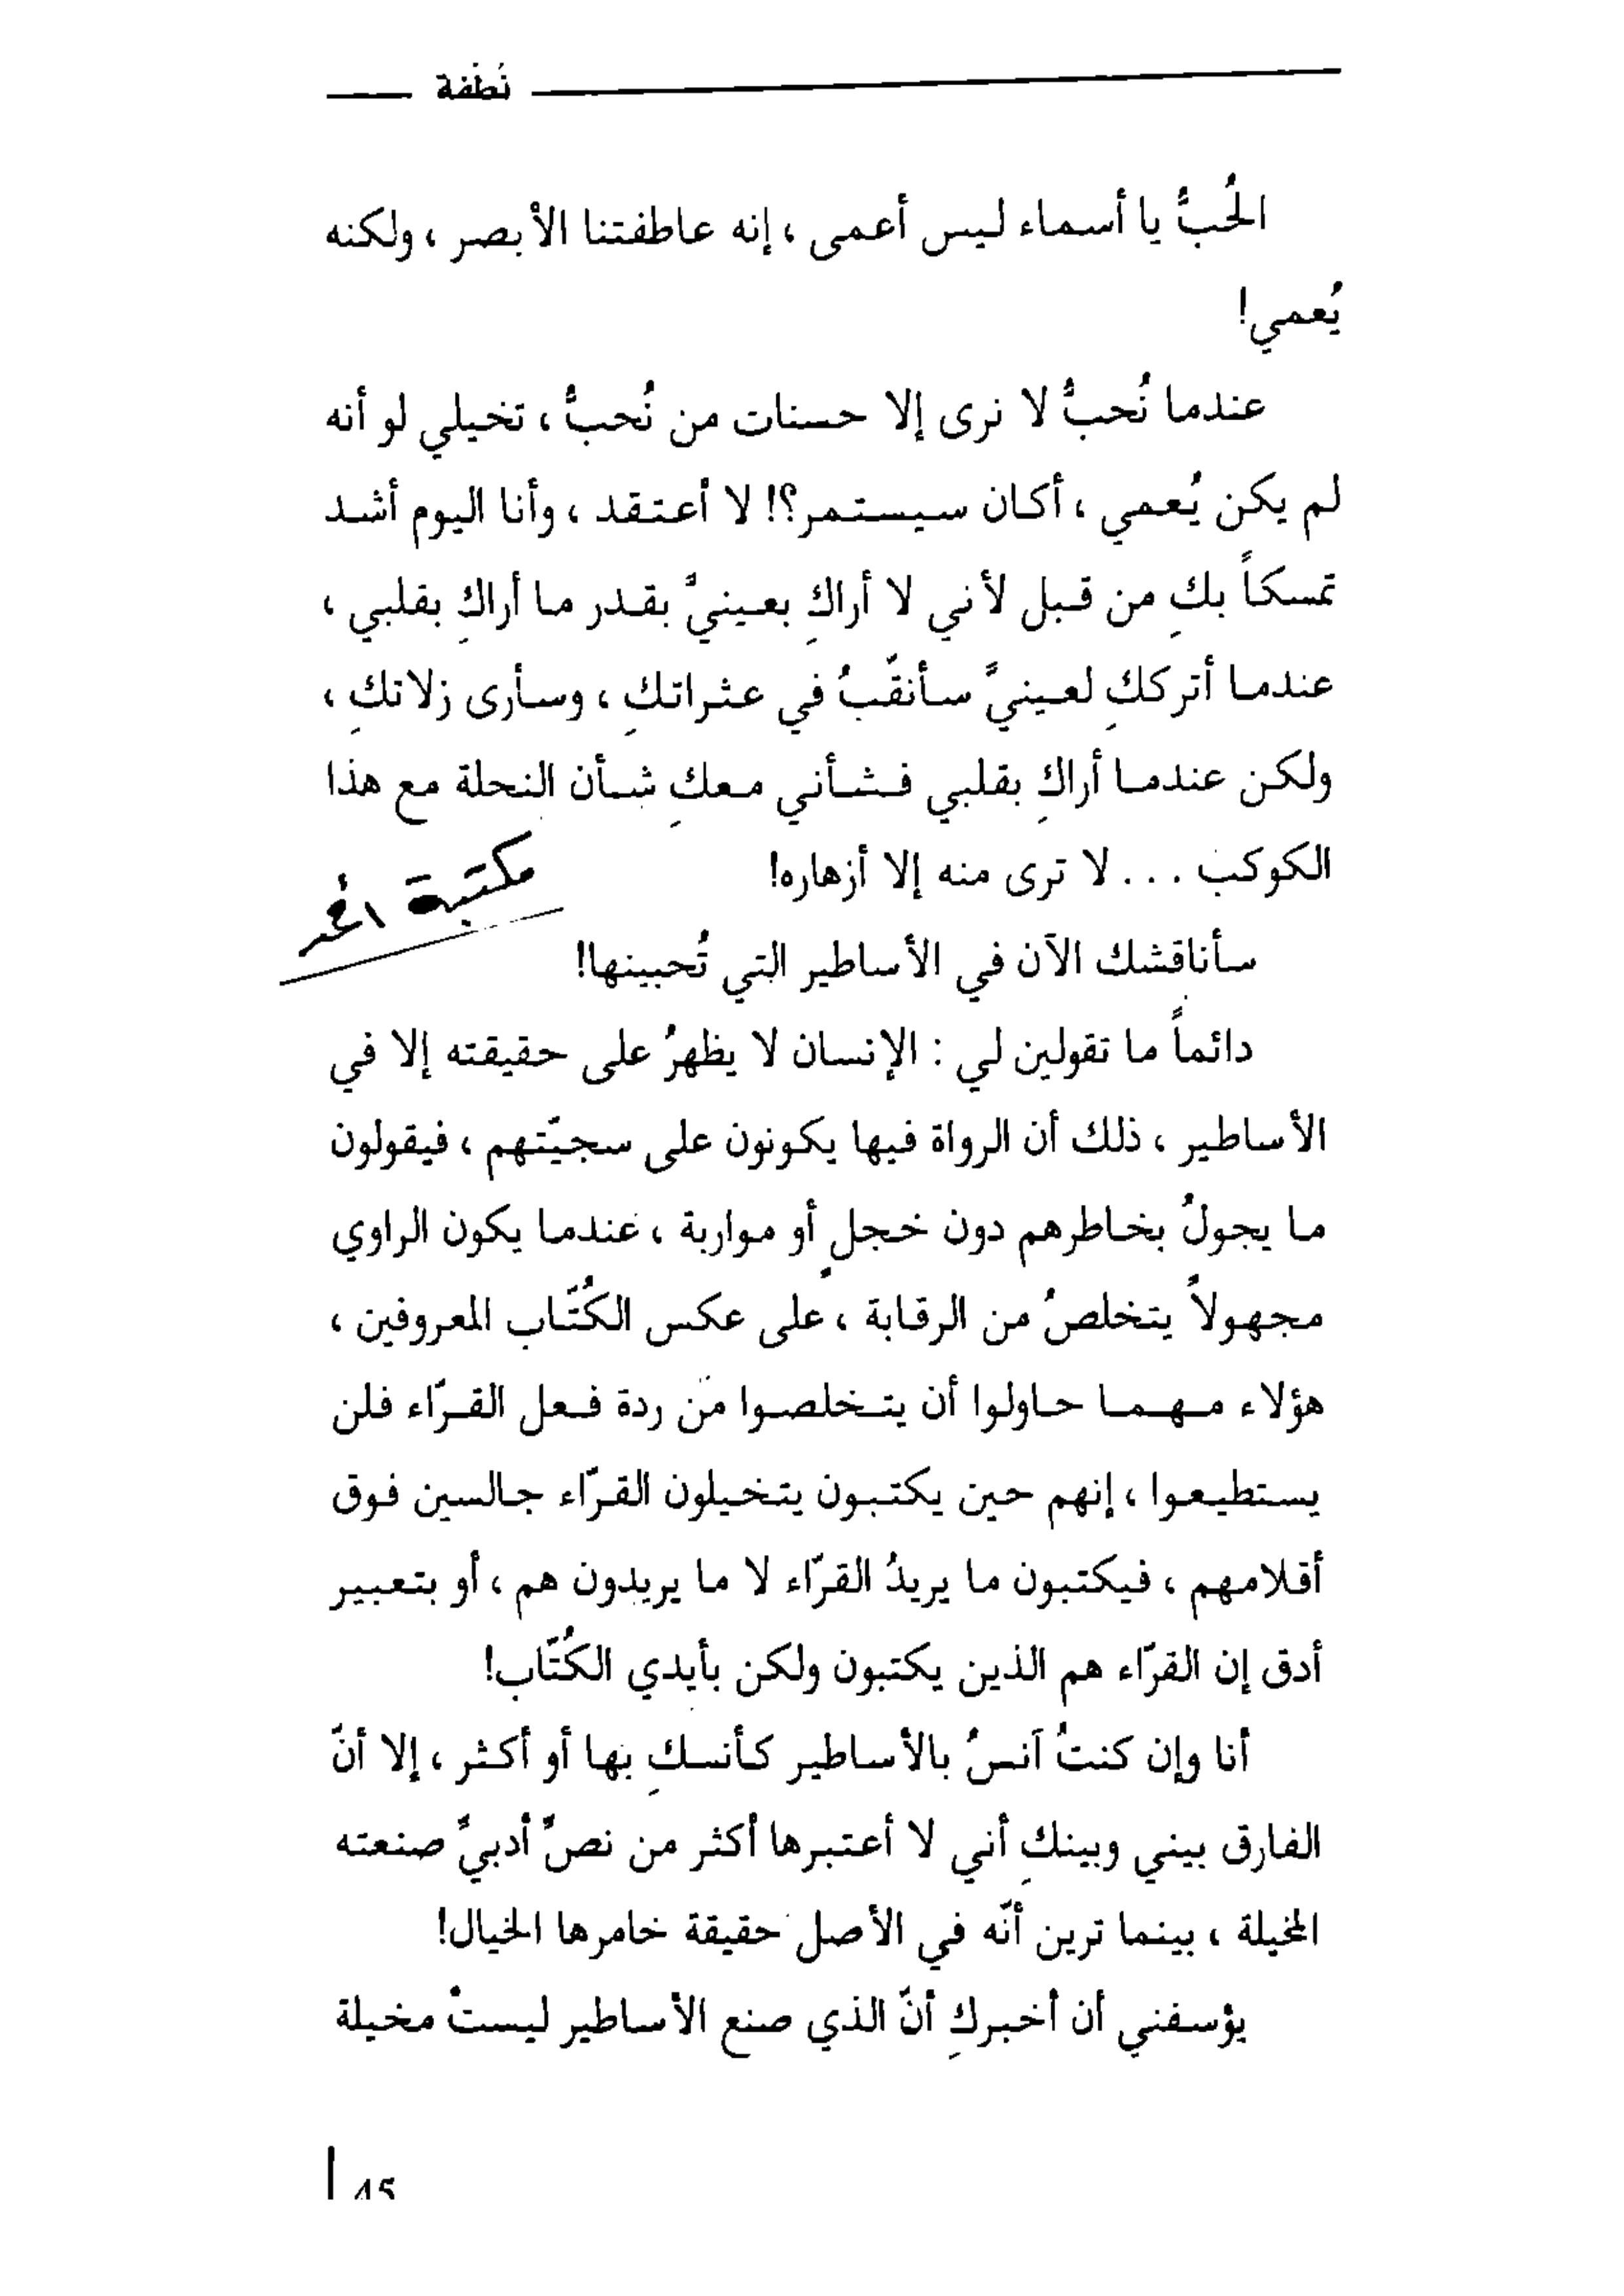 نُطْفة
الحُبُّ يا أسماء ليس أعمى ، إنه عاطفتنا الأبصر ، ولكنه
يُعمي!
عندما نُحبُّ لا نرى إلا حسنات من نُحبُّ ، تخيلي لو أنه
لم يكن يُعمي ، أكان سيستمر؟! لا أعتقد ، وأنا اليوم أشد
تمسكاً بكِ من قبل لأني لا أراكِ بعينيَّ بقدر ما أراكِ بقلبي ،
عندما أترككِ لعينيَّ سأنقّبُ في عثراتكِ ، وسأرى زلاتكِ ،
ولكن عندما أراكِ بقلبي فشأني معكِ شأن النحلة مع هذا
الكوكب ... لا ترى منه إلا أزهاره!
مكتبة
سأناقشك الآن في الأساطير التي تُحبينها!
دائماً ما تقولين لي : الإنسان لا يظهرُ على حقيقته إلا في
الأساطير ، ذلك أن الرواة فيها يكونون على سجيّتهم ، فيقولون
ما يجولُ بخاطرهم دون خجلٍ أو مواربة ، عندما يكون الراوي
مجهولاً يتخلصُ من الرقابة ، على عكس الكُتّاب المعروفين ،
هؤلاء مهما حاولوا أن يتخلصوا من ردة فعل القرّاء فلن
يستطيعوا ، إنهم حين يكتبون يتخيلون القرّاء جالسين فوق
أقلامهم ، فيكتبون ما يريدُ القرّاء لا ما يريدون هم ، أو بتعبير
أدق إن القرّاء هم الذين يكتبون ولكن بأيدي الكُتّاب!
أنا وإن كنتُ آنسُ بالأساطير كأنسكِ بها أو أكثر ، إلا أنّ
الفارق بيني وبينكِ أني لا أعتبرها أكثر من نصٍّ أدبيٍّ صنعته
المخيلة ، بينما ترين أنّه في الأصل حقيقة خامرها الخيال!
يؤسفني أن أخبركِ أنّ الذي صنع الأساطير ليستْ مخيلة
45